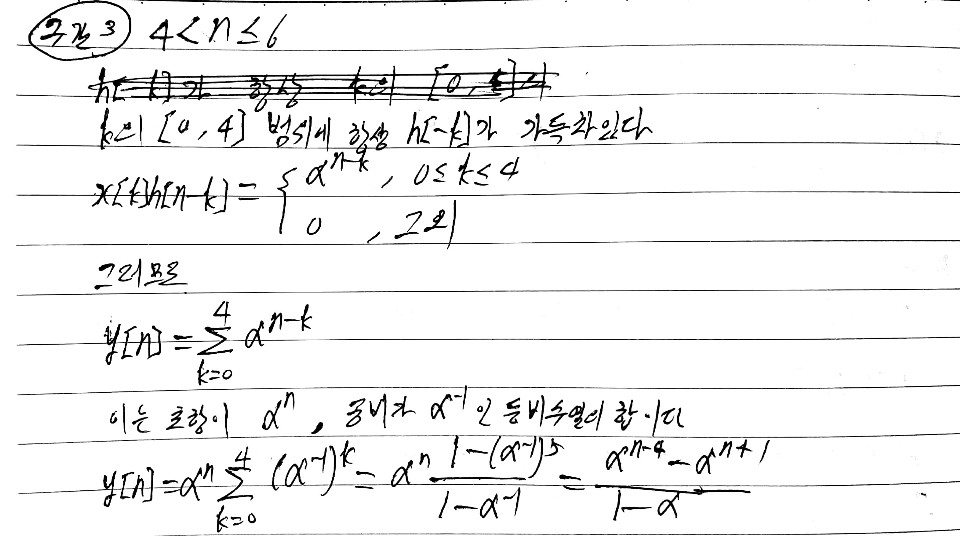 구간 3 4<n≤6
h[-k]가 항상 k의 [0, k]의
k의 [0, 4] 범위에 항상 h[-k]가 가득차있다
x[k]h[n-k] = { α^{n-k}, 0≤k≤4
0, 그외
그러므로
y[n] = Σ_{k=0}^{4} α^{n-k}
이는 초항이 α^n, 공비가 α^{-1}인 등비수열의 합이다
y[n] = α^n Σ_{k=0}^{4} (α^{-1})^k = α^n \frac{1-(α^{-1})^5}{1-α^{-1}} = \frac{α^{n-4}-α^{n+1}}{1-α}